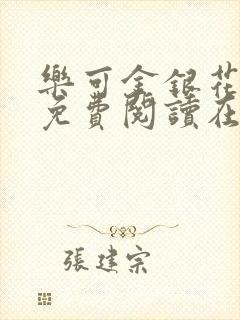 樂可金銀花
免費閱讀在
張建宗